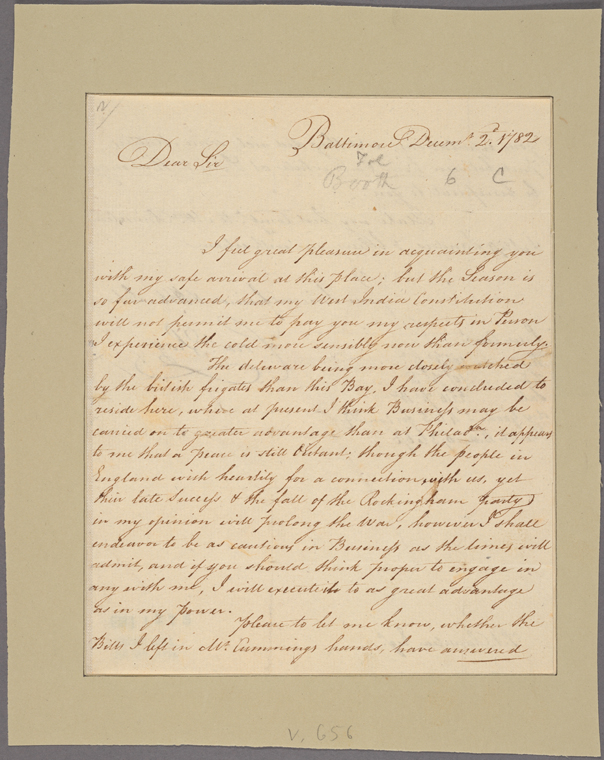 2/
Baltimore Decemr. 2d. 1782
Dear Sir
Booth 6 C
I feel great pleasure in acquainting you
with my safe arrival at this place; but the Season is
so far advanced, that my West India Constitution
will not permit me to pay you my respects in Person
I experience the cold more sensibly now than formerly.
The deleware being more closely watched
by the british frigates than this Bay, I have concluded to
reside here, where at present I think Business may be
carried on to greater advantage than at Philada., it appears
to me that a peace is still distant; though the people in
England wish heartily for a connection with us, yet
their late success & the fall of the Rockingham party
in my opinion will prolong the War, however I shall
endeavor to be as cautious in Business as the times will
admit, and if you should think proper to engage in
any with me, I will execute it to as great advantage
as in my power.
please to let me know, whether the
Bills I left in Mr. Cummings hands, have answered
v. 656